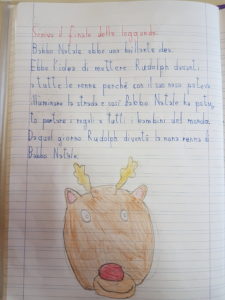 Scrivo il finale della leggenda.
Babbo Natale ebbe una brillante idea.
Ebbe l'idea di mettere Rudolph davanti
a tutte le renne perché con il suo naso poteva
illuminare la strada e così Babbo Natale ha potu
to portare i regali a tutti i bambini del mondo.
Da quel giorno Rudolph diventò la nona renna di
Babbo Natale.